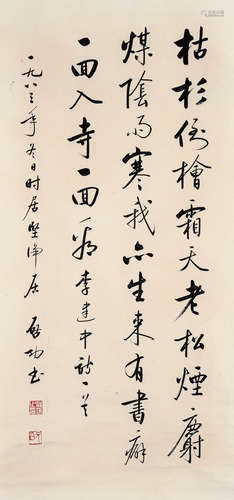 枯杉倒檜霜天老松煙麝
煤陰雨寒我亦生來有書癖
一面入寺一面看李建中詩一首
一九八三年冬日時居堅淨居啟功書